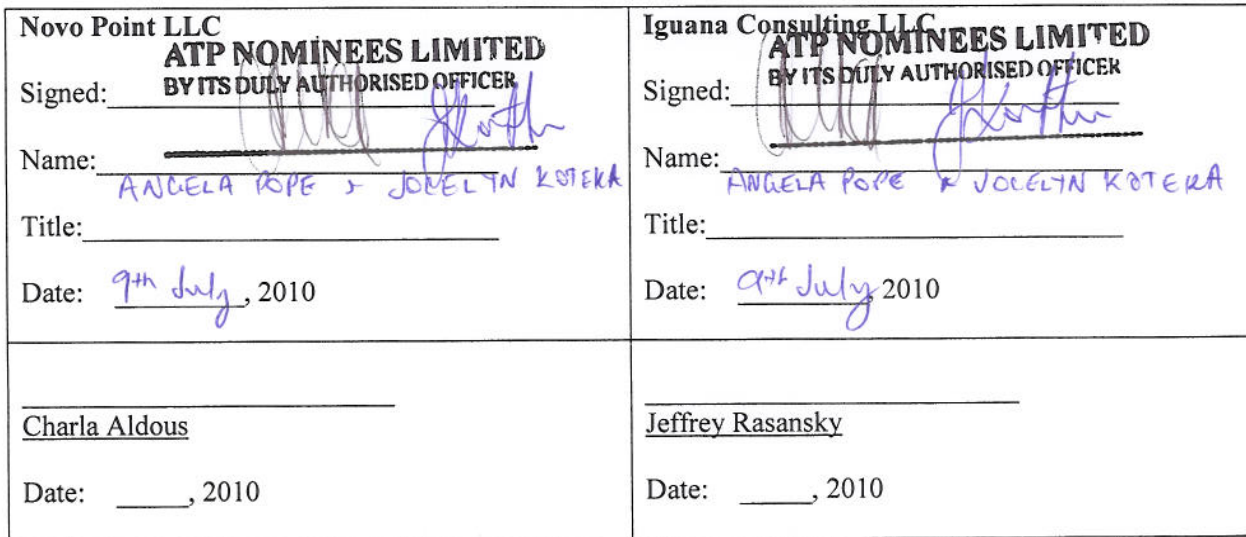 Novo Point LLC
ATP NOMINEES LIMITED
BY ITS DULY AUTHORISED OFFICER
Signed:
Name:
ANGELA POPE & JOCELYN KOTEKA
Title:
Date: 9th July, 2010
Iguana Consulting LLC
ATP NOMINEES LIMITED
BY ITS DULY AUTHORISED OFFICER
Signed:
Name:
ANGELA POPE & JOCELYN KOTEKA
Title:
Date: 9th July, 2010
Charla Aldous
Date: , 2010
Jeffrey Rasansky
Date: , 2010